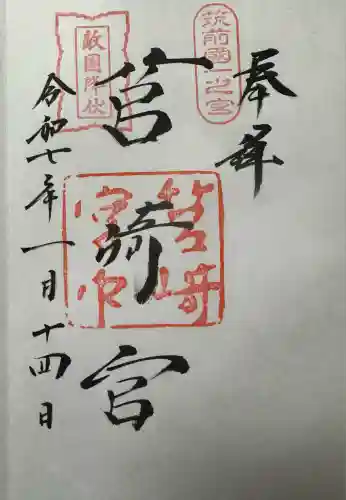 奉拝
筑前國一之宮
筥崎宮
筥崎宮印
敵国降伏
令和七年一月十四日